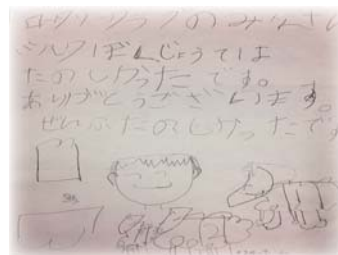 ロータリークラブのみなさん
シルクぼくじょうては
たのしかったてす。
ありがとうございます。
ぜいぶたのしかったです